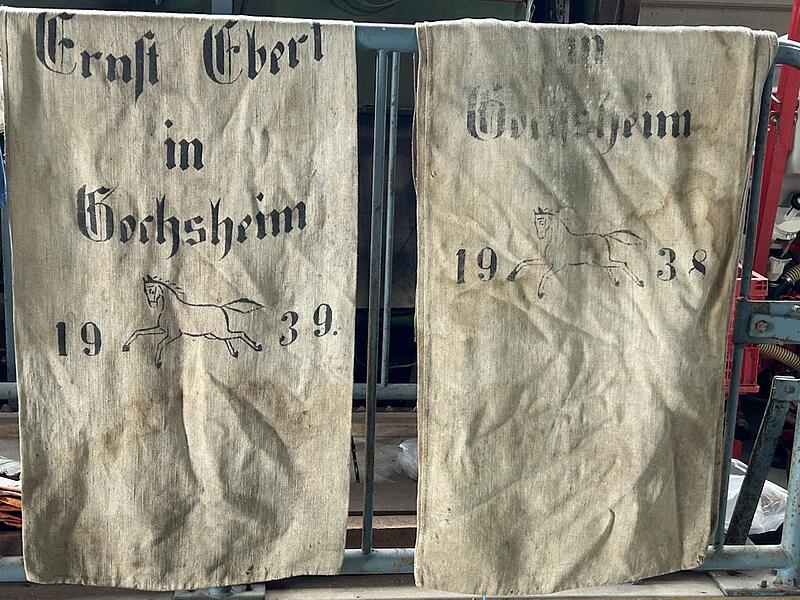 Ernst Ebert
in
Gochsheim
19 39.
in
Gochsheim
19 38